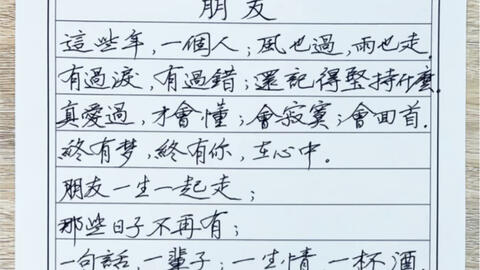 朋友
這些年，一個人；風也過，雨也走．
有過淚，有過錯；還記得堅持什麼．
真愛過，才會懂；會寂寞；會回首．
終有梦，終有你，在心中。
朋友一生一起走；
那些日子不再有；
一句話，一輩子；一生情，一杯酒．